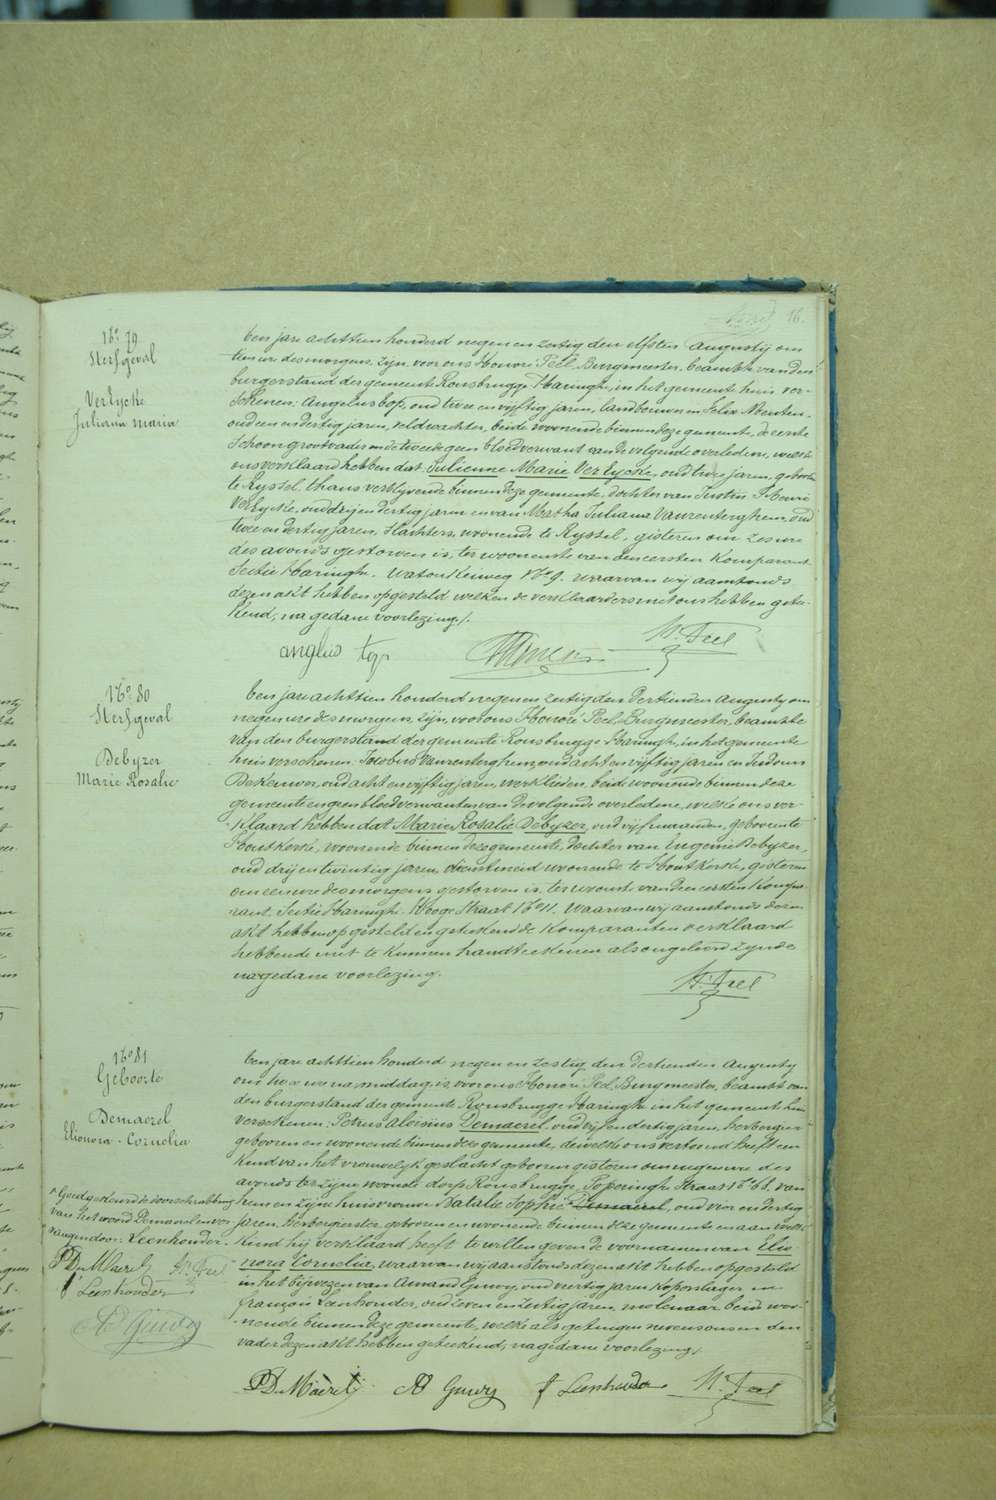 16.
No 79
Sterfgeval
Verlycke
Juliana Maria
ten jare achttien honderd negen en zestig den elfsten Augusty om
tien ure des morgens, zijn voor ons Honoré Peel, Burgmeester, beambte van den
burgerstand der gemeente Rousbrugge Haringhe, in het gemeente huis ver-
schenen, Angelus Top, oud twee en vyftig jaren, landbouwer en Felix
oud een en dertig jaren, veldwachter, beide woonende binnen deze gemeente, de eerste
schoon grootvader en de tweede geen bloedverwant van de volgende overledene, welke
ons verklaard hebben dat Julienne Marie Verlycke, oud twee jaren, geboren
te Ryssel, thans verblyvende binnen deze gemeente, dochter van Justin Henri
Verlycke, oud dry en dertig jaren en van Martha Juliana Vanrenterghem, oud
twee en dertig jaren, slachters, woonende te Ryssel, gisteren om zes ure
des avonds gestorven is, ter woonenste van den eersten komparant
Sectie Haringhe, Watou Keiweg No 9. waarvan wy aanstonds
dezen akt hebben opgesteld welken de verklaarders met ons hebben getee-
kend, na gedane voorlezing /.
anglus top H. Peel
No 80
Sterfgeval
Debyzer
Marie Rosalie
ten jare achttien honderd negen en zestig den dertienden Augusty om
negen ure des morgens, zijn, voor ons Honoré Peel, Burgmeester, beambte
van den burgerstand der gemeente Rousbrugge Haringhe, in het gemeente
huis verschenen Jacobus Vanrenterghem, oud acht en vyftig jaren en Isidorus
oud acht en vyftig jaren, werklieden, beide woonende binnen deze
gemeente en geen bloedverwanten van de volgende overledene, welke ons ver-
klaard hebben dat Marie Rosalie Debyzer, oud vyf maanden, geboren te
Houtkerke, woonende binnen deze gemeente, dochter van Eugenie Debyzer,
oud dry en twintig jaren, dienstmeid woonende te Houtkerke, gisteren
om een ure des morgens gestorven is, ter woonste van den eersten kompa-
rant, Sectie Haringhe, Hooge Straat No 11. Waarvan wy aanstonds dezen
akt hebben opgesteld en geteekend de komparanten verklaard
hebbende niet te kunnen handteekenen als ongeleerd zynde
na gedane voorlezing.
H. Peel
No 81
Geboorte
Demaerel
Elionora Cornelia
ten jare achttien honderd negen en zestig den dertienden Augusty
om twee ure namiddag, is voor ons Honoré Peel, Burgmeester, beambte van
den burgerstand der gemeente Rousbrugge Haringhe in het gemeente huis
verschenen, Petrus Aloisius Demaerel, oud vyf en dertig jaren, herbergier
geboren en woonende binnen deze gemeente, dewelke ons vertoond heeft een
kind van het vrouwelyk geslacht geboren gisteren om negen ure des
avonds ter zyne woonst dorp Rousbrugge, Poperinghe Straat No 68, van
hem en zyne huisvrouw Natalie Sophie Demaerel, oud vier en dertig
jaren, herbergierster, geboren en woonende binnen deze gemeente en aan welke
kind hy verklaard heeft te willen geven de voornamen van Elio
nora Cornelia, waarvan wy aanstonds dezen akt hebben opgesteld
in het bywezen van Amand Guwy, oud veertig jaren koperslager en
françois Leenhouder, oud zeven en zestig jaren, molenaar beide woo-
nende binnen deze gemeente, welke als getuigen nevens ons en den
vader dezen akt hebben geteekend, na gedane voorlezing /.
Goedgekeurd de doorschrabbing
van het woord Demaerel en ver-
vangen door: Leenhouder.
P D. Maerel H. Peel
f Leenhouder
AD Guwy
P D. Maerel AD Guwy f Leenhouder H. Peel